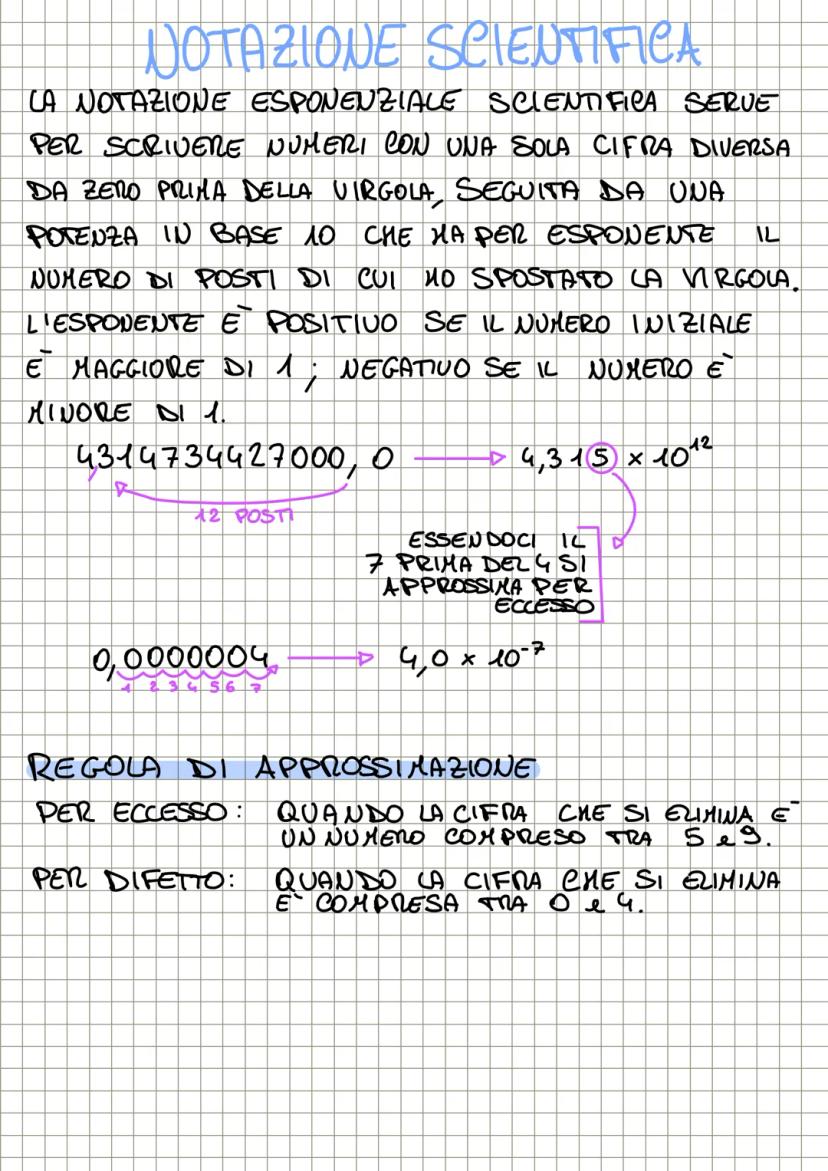 NOTAZIONE SCIENTIFICA
LA NOTAZIONE ESPONENZIALE SCIENTIFICA SERVE
PER SCRIVERE NUMERI CON UNA SOLA CIFRA DIVERSA
DA ZERO PRIMA DELLA VIRGOLA, SEGUITA DA UNA
POTENZA IN BASE 10 CHE HA PER ESPONENTE IL
NUMERO DI POSTI DI CUI HO SPOSTATO LA VIRGOLA.
L'ESPONENTE È POSITIVO SE IL NUMERO INIZIALE
È MAGGIORE DI 1; NEGATIVO SE IL NUMERO È
MINORE DI 1.
4,314734427000,0 → 4,315 × 10¹²
12 POSTI
ESSENDOCI IL
7 PRIMA DEL 4 SI
APPROSSIMA PER
ECCESSO
0,0000004 → 4,0 × 10⁻⁷
1 2 3 4 5 6 7
REGOLA DI APPROSSIMAZIONE
PER ECCESSO: QUANDO LA CIFRA CHE SI ELIMINA È
UN NUMERO COMPRESO TRA 5 e 9.
PER DIFETTO: QUANDO LA CIFRA CHE SI ELIMINA
È COMPRESA TRA 0 e 4.